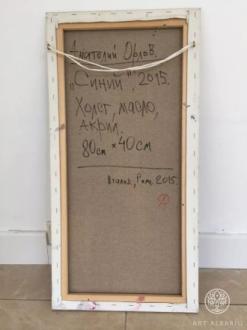 Анатолий Орлов.
"Синий", 2015.
Холст, масло,
Акрил.
80см × 40см
Италия, Рим, 2015.